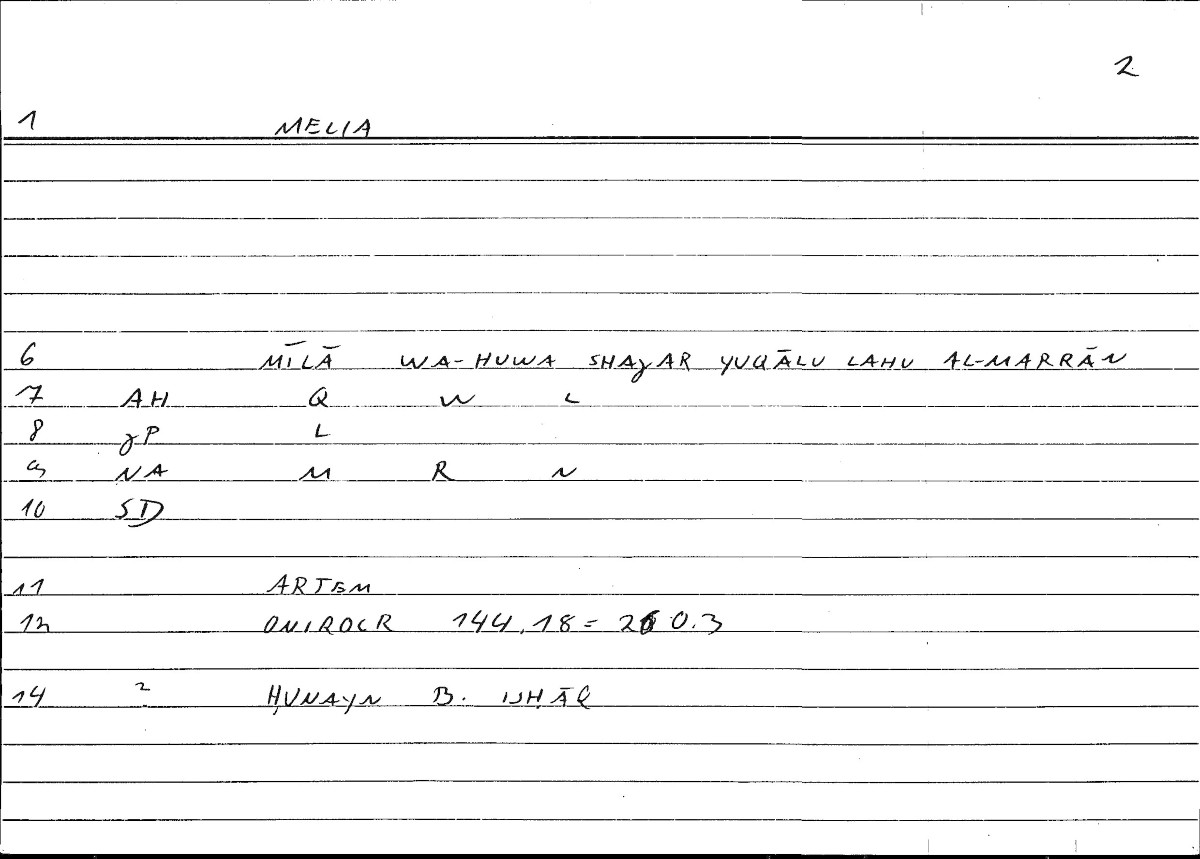 2
1 MELIA
6 MĪLĀ WA-HUWA SHAJAR YUQĀLU LAHU AL-MARRĀN
7 AH Q W L
8 JP L
9 NA M R N
10 SD
11 ARTEM
12 ONIROCR 144.18 = 260.3
14 2 ḤUNAYN B. ISḤĀQ